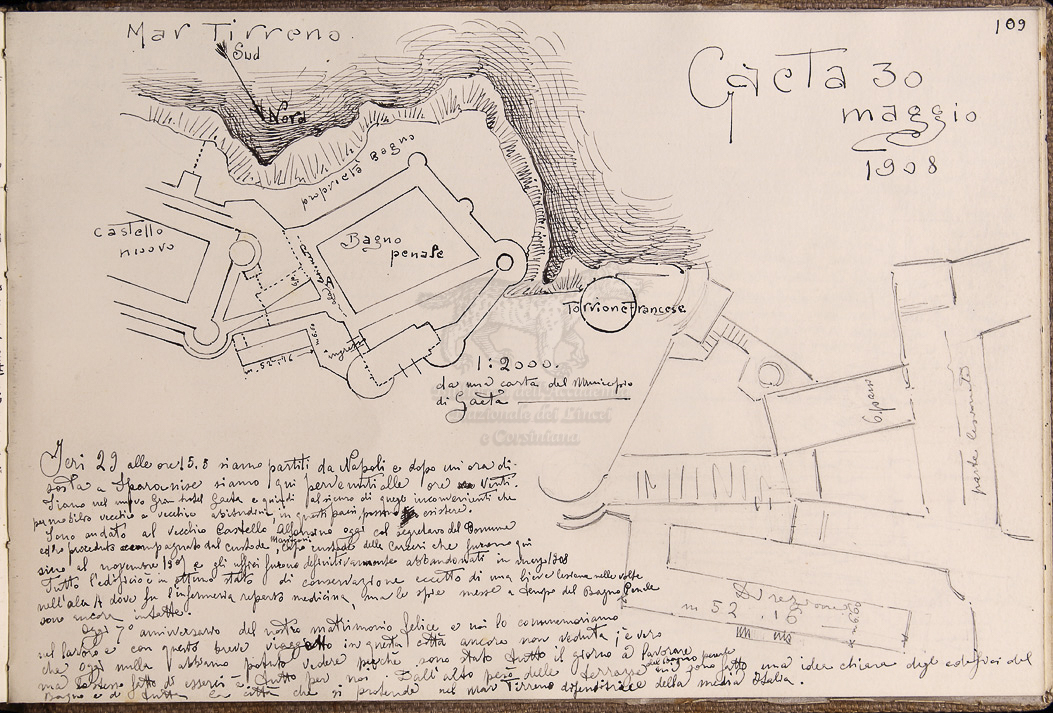 109
Mar Tirreno.
Sud
Nord
Gaeta 30
maggio
1908
proprietà Bagno
Castello
nuovo
Bagno
penale
Torrione Francese
ingresso
1:2000.
da una carta del Municipio
di Gaeta
6 passi
parte lesionata
Direzione
m 52.16
Ieri 29 alle ore 15.8 siamo partiti da Napoli e dopo un'ora di
sosta a Sparanise siamo qui pervenuti alle ore Venti.
Siamo nel nuovo Gran hotel Gaeta e quindi al sicuro di quegli inconvenienti che
per mobilio vecchio e vecchie abitudini, in questi paesi, possono esistere.
Sono andato al vecchio Castello Alfonsino oggi col segretario del Comune
ed ho proceduto accompagnato dal custode, capo custode delle Carceri che furono qui
sino al novembre 1907 e gli uffici furono definitivamente abbandonati in marzo 1908
Tutto l'edificio è in ottimo stato di conservazione eccetto di una lieve lesione nelle volte
nell'ala A dove fu l'infermeria reparto medicina, ma le spie messe a tempo del Bagno Penale
sono ancora intatte.
Oggi 7° anniversario del nostro matrimonio felice e noi lo commemoriamo
nel lavoro e con questo breve viaggetto in questa città ancora non veduta; è vero
che oggi nulla abbiamo potuto vedere perchè sono stato tutto il giorno a lavorare
ma lo stesso fatto di esserci è tutto per noi. Dall'alto però delle terrazze del bagno penale mi sono fatto una idea chiara degli edifici del
Bagno e di tutta la città che si protende nel mar Tirreno difenditrice della media Italia.